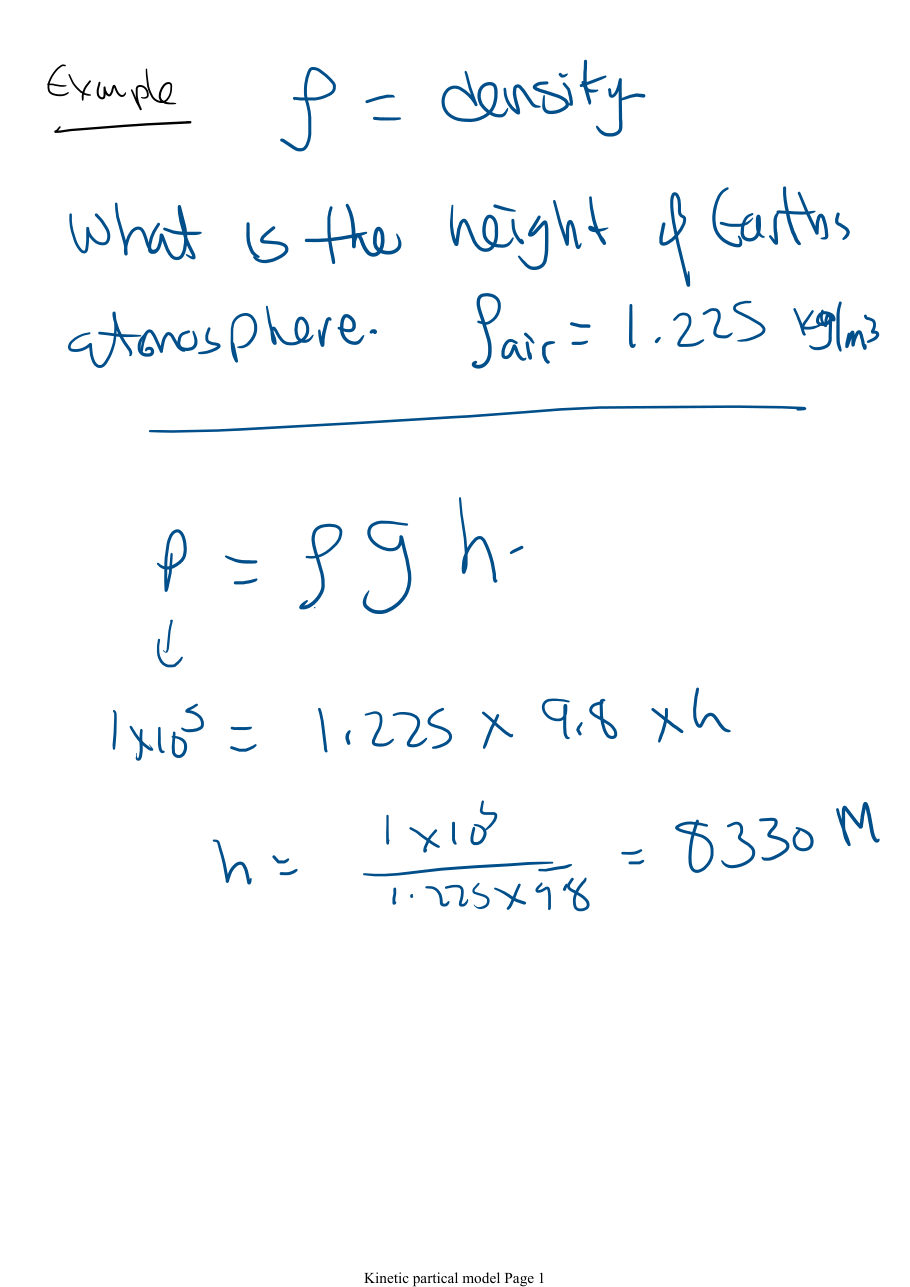 Example ρ = density
What is the height of Earths
atmosphere. ρair = 1.225 kg/m3
P = ρ g h.
↓
1x10⁵ = 1.225 x 9.8 x h
h = 1 x 10⁵ / 1.225 x 9.8 = 8330 M
Kinetic partical model Page 1